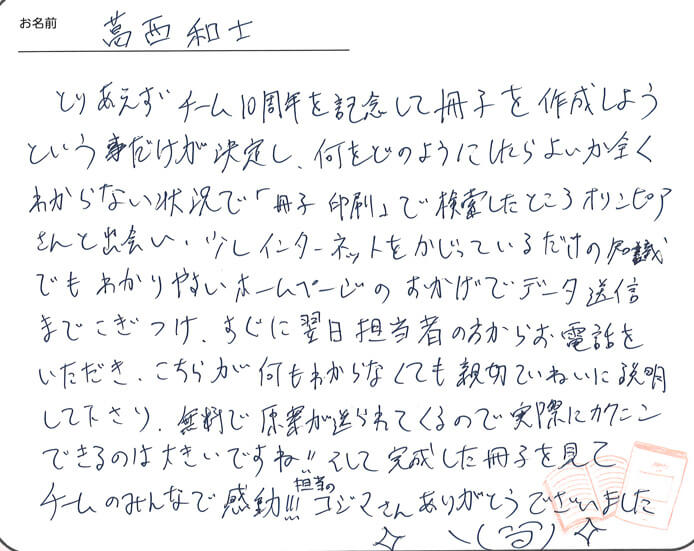 お名前 葛西和士
とりあえずチーム10周年を記念して冊子を作成しよう
という事だけが決定し、何をどのようにしたらよいか全く
わからない状況で「冊子 印刷」で検索したところオリンピア
さんと出会い、少しインターネットをかじっているだけの知識
でもわかりやすいホームページのおかげでデータ送信
までこぎつけ、すぐに翌日担当者の方からお電話を
いただき、こちらが何もわからなくても親切ていねいに説明
して下さり、無料で原案が送られてくるので実際にカクニン
できるのは大きいですね!! そして完成した冊子を見て
チームのみんなで感動!!! 担当のコジマさんありがとうございました